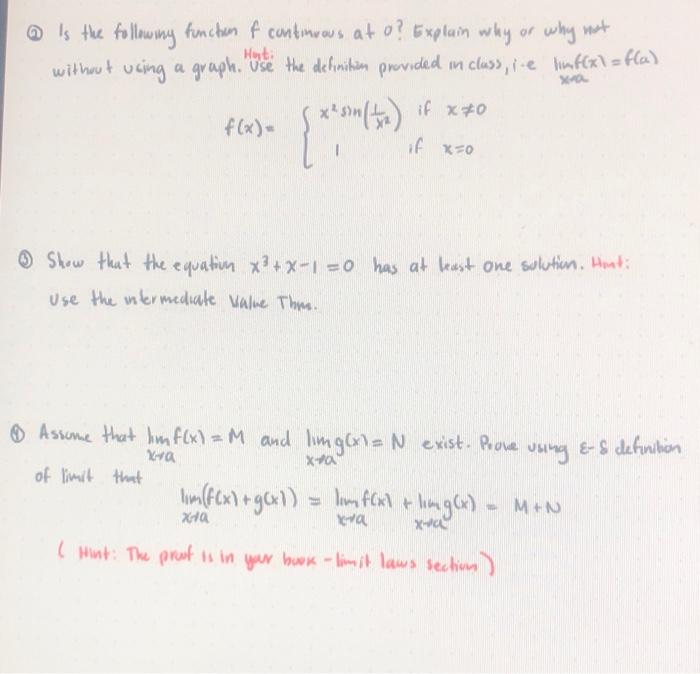 ② Is the following function f continuous at 0? Explain why or why not
without using a graph. Hint: Use the definition provided in class, i-e lim f(x) = f(a)
x→a
f(x) = { x² sin(1/x²) if x≠0
1 if x=0
③ Show that the equation x³ + x - 1 = 0 has at least one solution. Hint:
Use the intermediate Value Thm.
④ Assume that lim f(x) = M and lim g(x) = N exist. Prove using ε-δ definition
x→a x→a
of limit that
lim (f(x) + g(x)) = lim f(x) + lim g(x) = M + N
x→a x→a x→a
( Hint: The proof is in your book - limit laws section )